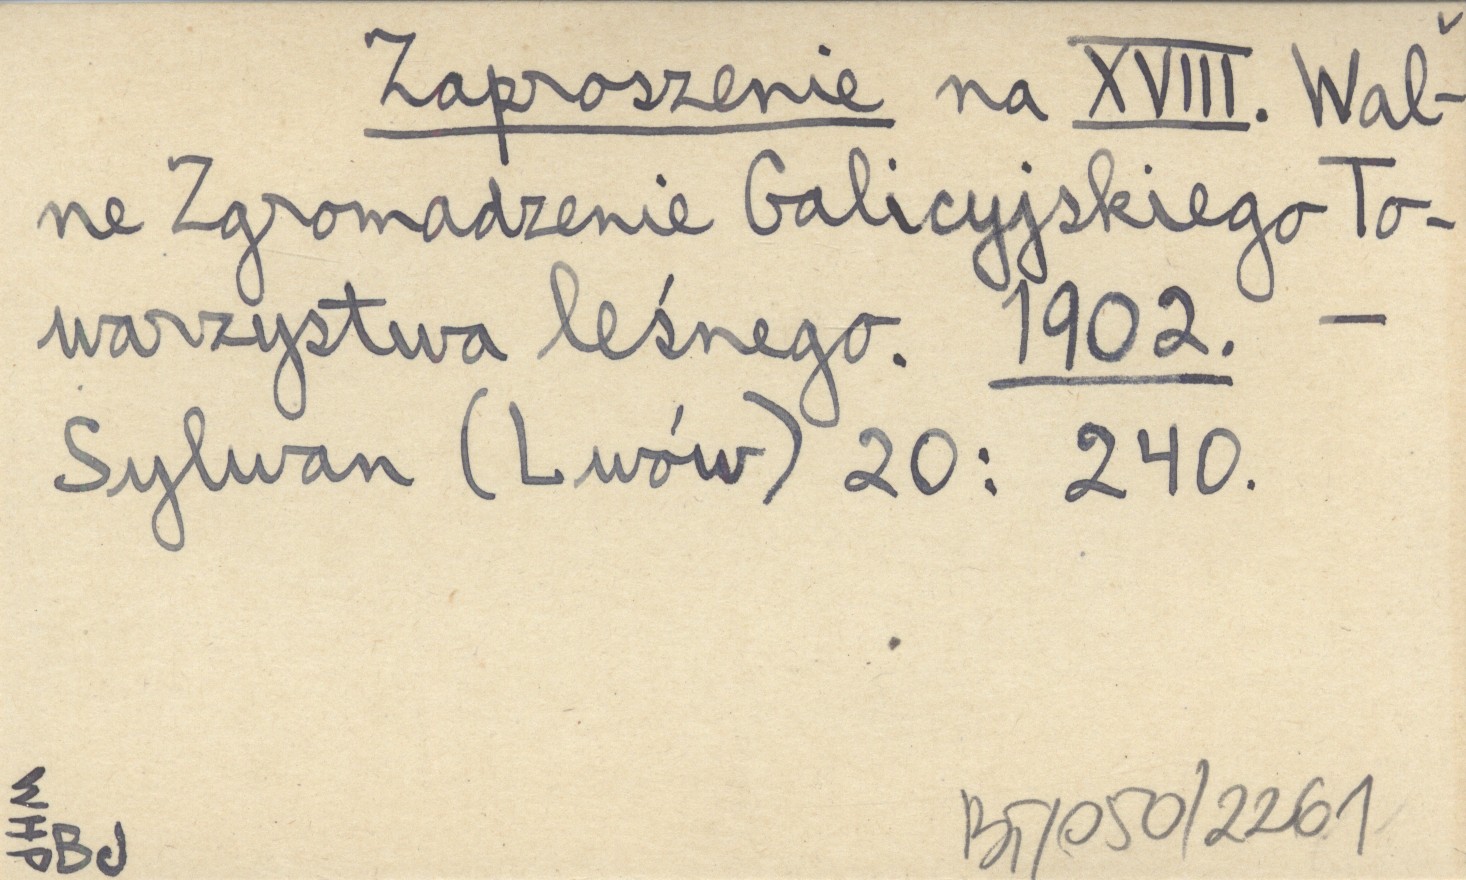 Zaproszenie na XVIII. Wal-
ne Zgromadzenie Galicyjskiego To-
warzystwa leśnego. 1902. —
Sylwan (Lwów) 20: 240.
BJ
/050/2261